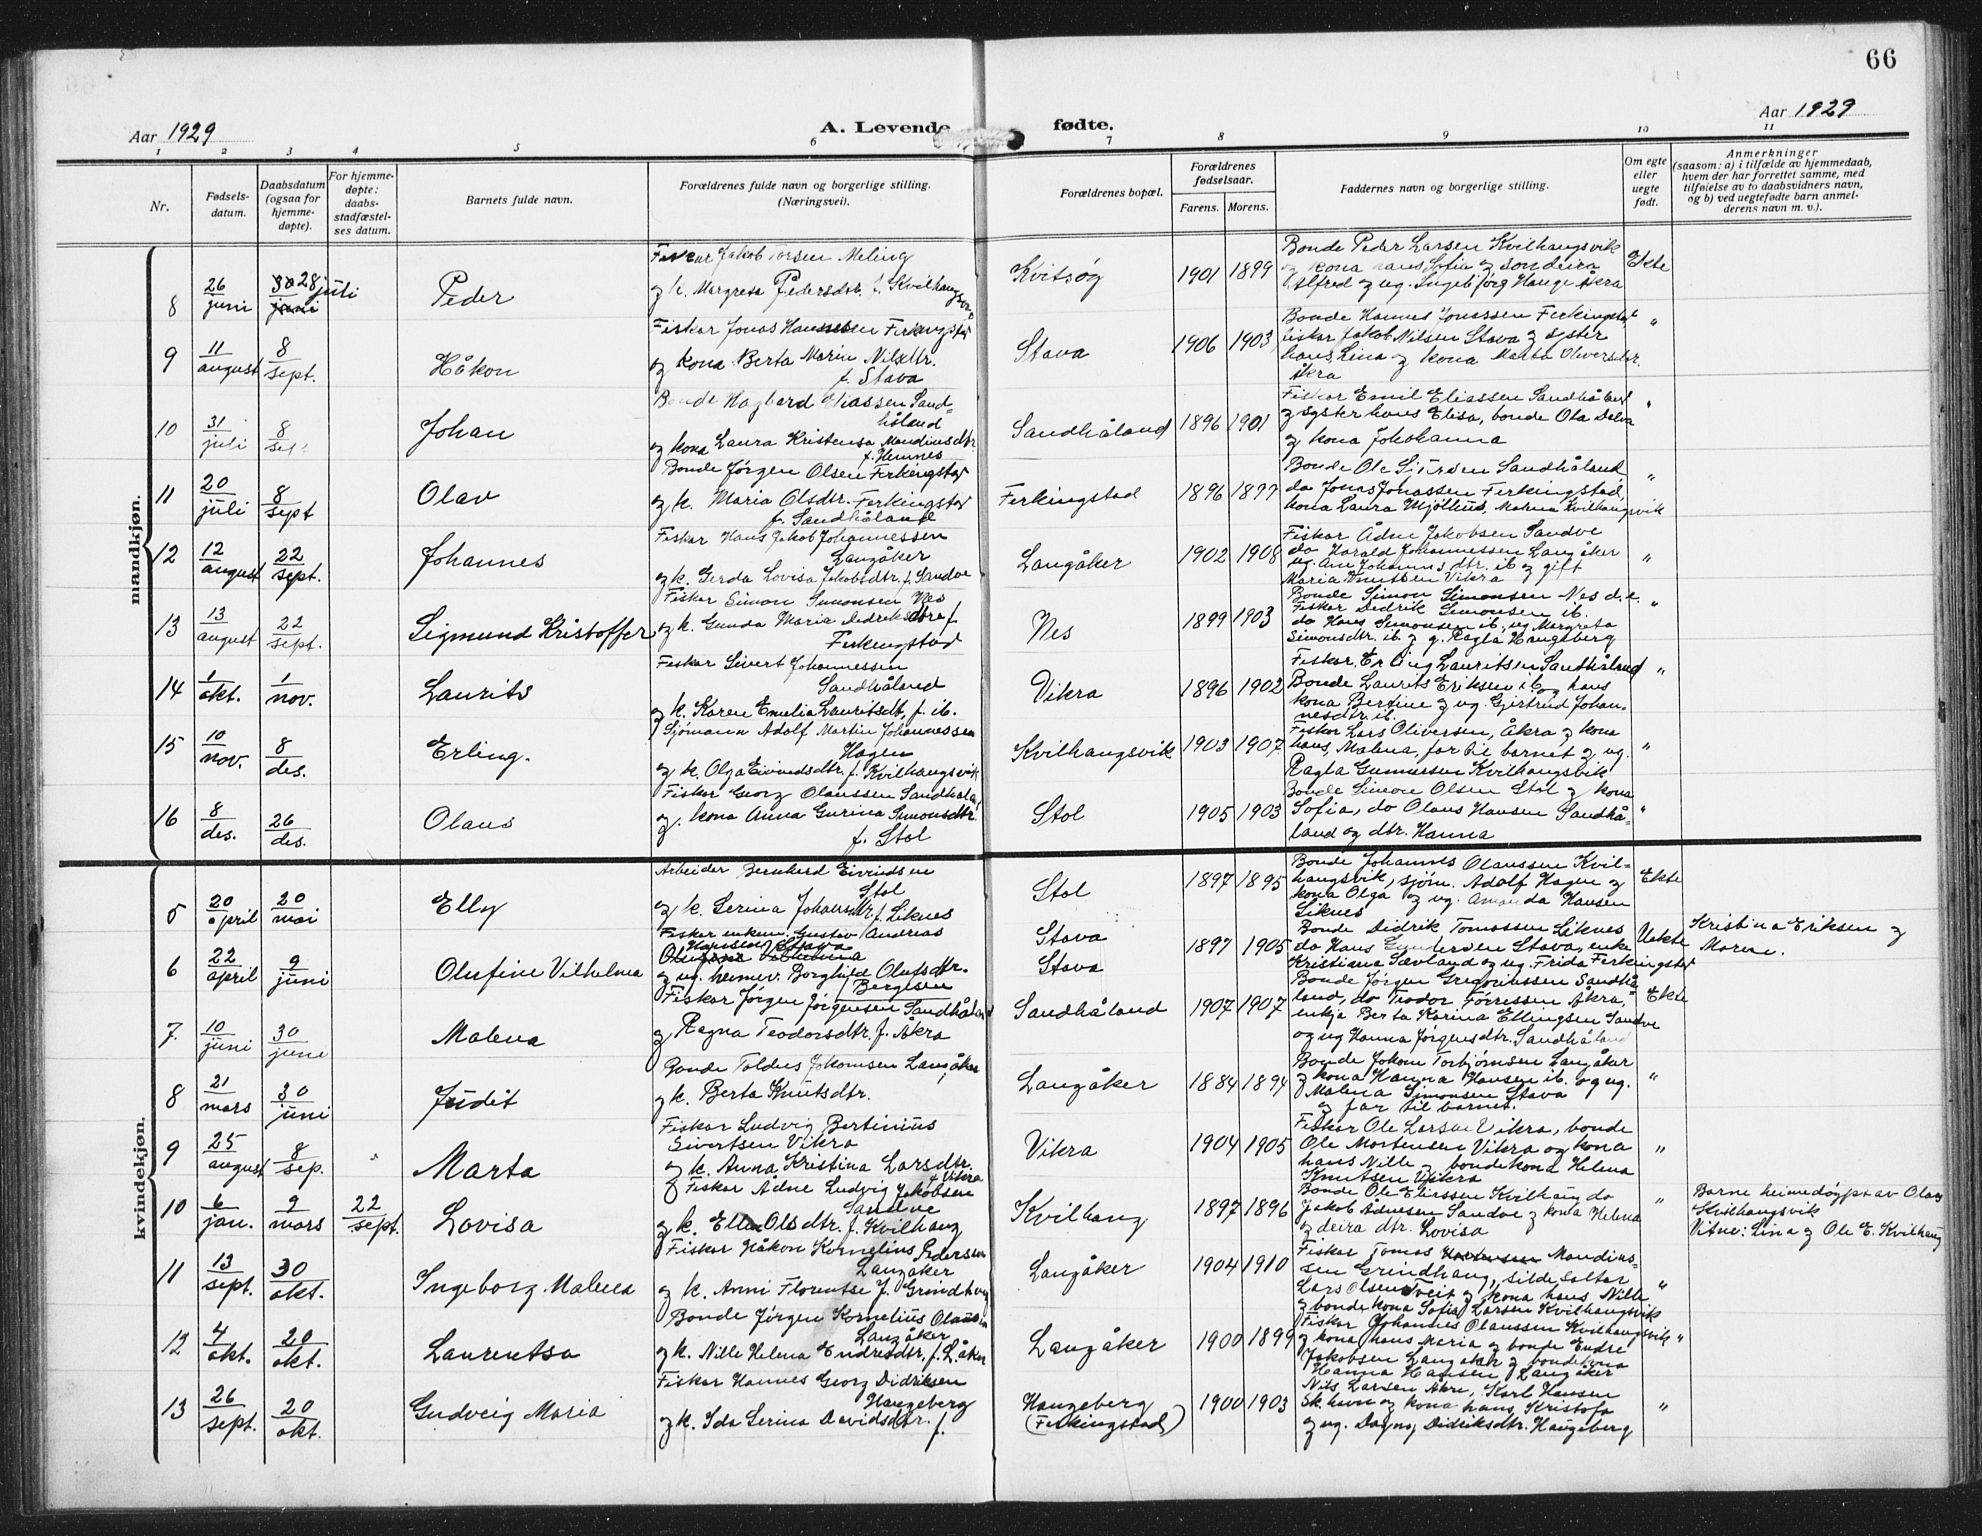 66
Aar 1929
A. Levende fødte.
Aar 1929
1 2 3 4 5 6 7 8 9 10 11
Nr.
Fødsels-
datum.
Daabsdatum
(ogsaa for
hjemme-
døpte).
For hjemme-
døpte:
daabs-
stadfæstel-
ses datum.
Barnets fulde navn.
Forældrenes fulde navn og borgerlige stilling.
(Næringsvei).
Forældrenes bopæl.
Forældrenes
fødselsaar.
Farens. Morens.
Faddernes navn og borgerlige stilling.
Om egte
eller
uegte
født.
Anmerkninger
(saasom: a) i tilfælde av hjemmedaab,
hvem der har forrettet samme, med
tilføielse av to daabsvidners navn,
og b) ved uegtefødte barn anmel-
derens navn m. v.).
mandkjøn.
8
26
juni
30 28 juli
juni
Peder
Fiskar Jakob Torsen Meling
og k. Margreta Pedersdtr. f. Kvilhangsvik
Kvitsøy
1901 1899
Bonde Peder Larsen Kvilhangsvik
og kona hans Sofie og son deira
Alfred og ug. Ingebjørg Hauge Åkra
Ekte
9
11
august
8
sept.
Håkon
Fiskar Jonas Hannesen Ferkingstad
og kona Berta Marin Nilsdtr.
f. Stava
Stava
1906 1903
Bonde Hannes Jonassen Ferkingstad
fiskar Jakob Nilsen Stava og syster
hans, Lina og kona Marta Oliversdtr.
Åkra
"
10
31
juli
8
sept
Johan
Bonde Hagbard Eliassen Sand=
håland
og kona Laura Kristensa Mandiusdtr.
f. Hemnes
Sandhåland
1896 1901
Fiskar Emil Eliassen Sandhåland
og syster hans Elisa, bonde Ola Dalva
og kona Johohanna
"
11
20
juli
8
sept
Olav
Bonde Jørgen Olsen Ferkingstad
og k. Maria Olsdtr. Ferkingstad
f. Sandhåland
Ferkingstad
1896 1897
Bonde Ole Sjursen Sandhåland
do Jonas Jonassen Ferkingstad,
kona Laura Mjølhus, Malena Kvilhangsvik
"
12
12
august
22
sept.
Johannes
Fiskar Hans Jakob Johannessen
Langåker
og k. Gerda Lovisa Jakobsdtr. f. Sandve
Langåker
1902 1908
Fiskar Ådne Jakobsen Sandve
do Harald Johannessen Langåker
ug. Ani Johannesdtr. ib og gift
Maria Knutsen Vikra
"
13
13
august
22
sept.
Sigmund Kristoffer
Fiskar Simon Simonsen Nes
og k. Gunda Maria Didriksdtr. f.
Ferkingstad
Nes
1899 1903
Bonde Simon Simonsen Nes d.e.
Fiskar Didrik Simonsen ib.
do Hans Simonsen ib, ug Margreta
Simonsdtr. ib og g. Ragla Haugeberg
"
14
1
okt.
1
nov.
Laurits
Fiskar Sivert Johannessen
Sandhåland
og k. Karen Emelia Lauritsdt. f. ib.
Vikra
1896 1902
Fiskar Erling Lauritsen Sandhåland
Bonde Laurits Eriksen ib og hans
kona Bertine og ug. Gjertrud Johan-
nesdtr. ib.
"
15
10
nov.
8
des.
Erling.
Sjømann Adolf Martin Johannessen
Hagen
og k. Olga Eivindsdtr. f. Kvilhangsvik
Kvilhangsvik
1903 1907
Fiskar Lars Oliversen, Åkra og kona
hans, Malena, far til barnet og ug.
Ragla Gunnarsen Kvilhangsvik
"
16
8
des.
26
des.
Olaus
Fiskar Georg Olaussen Sandhåland
og kona Anna Gurina Simonsdtr.
f. Stol
Stol
1905 1903
Bonde Simon Olsen Stol og kona
Sofia, do Olaus Hansen Sandhå=
land og dtr. Hanna
"
kvindekjøn.
5
20
april
20
mai
Elly
Arbeider Bernhard Eivindsen
Stol
og k. Serina Johansdtr. f. Liknes
Stol
1897 1895
Bonde Johannes Olaussen Kvil-
hangsvik, sjøm. Adolf Hagen og
kona Olga og ug. Amanda Hansen
Liknes
Ekte
6
22
april
9
juni
Olufine Vilhelma
Fiskar enkem. Gustav Andreas
Hansen Stava
Olufine Vilhelma
og ug. heimev. Borghild Olufsdtr.
Bergesen
Stava
Stava
1897 1905
Bonde Didrik Tomassen Liknes
do Hans Gundersen Stava, enke
Kristiana Sævland og ug. Frida Ferkingstad
Uekte
Kristina Eriksen og
Moren.
7.
10
juni
30
juni
Malena
Fiskar Jørgen Jørgensen Sandhåland
og Ragna Teodorsdtr. f. Åkra
Sandhåland
1907 1907
Bonde Jørgen Gregoriussen Sandhå=
land, do Teodor Førressen Åkra,
enkja Berta Karina Ellingsen Sandve
og ug Hanna Jørgensdtr. Sandhåland
Ekte
8
21
mars
30
juni
Judit
Bonde Toldus Johansen Langåker
og k. Berta Knutsdtr.
Langåker
1884 1894
Bonde Johan Torbjørnsen Langåker
og kona Hanna Hansen ib. og ug.
Malena Simonsen Stava
og far til barnet.
"
9
25
august
8
sep.
Marta
Fiskar Ludvig Bertinius
Sivertsen Vikra
og k. Anna Kristina Larsdtr.
f. Vikra
Vikra
1904 1905
Fiskar Ole Larsen Vikra, bonde
Ole Mortensen Vikra og kona
hans Nille og bondekona Helena
Knutsen Vikra
"
10
6
jan.
9
mars
22
sept.
Lovisa
Fiskar Ådne Ludvig Jakobsen
Sandve
og k. Ellen Olsdtr. f. Kvilhang
Kvilhang
1897 1896
Bonde Ole Eliassen Kvilhaug do
Jakob Ådnesen Sandve og kona Helena
og deira dtr. Lovisa
"
Barne heimedøypt av Olav
Kvilhangsvik
Vitne: Lina og Ole E. Kvilhaug
11
13
sept.
30
okt.
Ingeborg Malena
Fiskar Håkon Kornelius Pedersen
Langåker
og k. Anni Florentse f. Grindhaug
Langåker
1904 1910
Fiskar Tomas Mandius-
sen Grindhaug, sildesaltar
Lars Olsen Tveit og kona hans Nille
og bondekona Sofia Larsen Kvilhangsvik
"
12
4
okt.
20
okt.
Laurentse
Bonde Jørgen Kornelius Olaussen
Langåker
og k. Nille Helena Endresdtr. f. L.åker
Langåker
1900 1899
Fiskar Johannes Olaussen Kvilhangsvik
og kona hans Maria og bonde Endre
Jakobsen Langåker og bondekona
Hanna Hansen Langåker
"
13
26
sept.
20
okt.
Gudveig Maria
Fiskar Hannes Georg Didriksen
Haugeberg
og k. Ida Serina Davidsdtr. f.
Haugeberg
(Ferkingstad)
1900 1903
Nils Larsen Åkra, Karl Hansen
Skhavn og kona hans Kristofa
og ug. Dagny Didriksdtr. Haugeberg
"